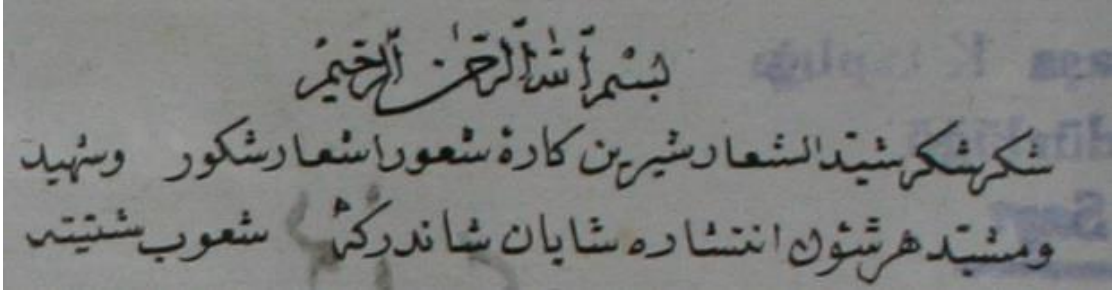 بسم الله الرحمن الرحيم
شكر شكر شيد الشعار شيرين كارهٔ شعور اشعار شكور وشهيد
ومشيد هر شئون انتشاره شايان شاندركه شعوب شتيته